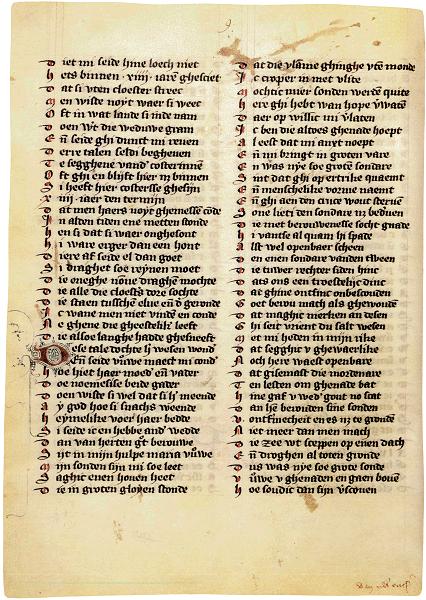 Diet mi seide hine loech niet
Hets binnen .xiiii. iarē ghesciet
Dat si vten cloester streec
Men wiste noyt waer si weec
Oft in wat lande si inde nam
Doen wt die weduwe gram
En̄ seide ghi dunct mi reuen
Derre talen seldi begheuen
Te segghene vand' costerinnē
Oft ghi en blijft hier nz binnen
Si heeft hier costersse ghesijn
Xiiij. iaer den termijn
Dat men haers noyt ghemesse cōde
In alden tiden ene metten stonde
Hen si dat si waer onghesont
Hi ware erger dan een hont
Diere af seide el dan goet
Si draghet soe reynen moet
Die oneghe nōne draghē mochte
Die alle die cloestē dore sochte
Die staen tusschē elue en̄ d' geronde
Ic wane men niet vindē en conde
Ne ghene die gheestelikē leeft
Die alsoe langhe hadde ghesneeft
Dese tale dochte hē wesen wond'
En̄ seide vrouwe maect mi cond'
Hoe hiet haer moed' en̄ vader
Doe noemesise beide gader
Doen wiste si wel dat si h' meende
Ay god hoe si snachs weende
Heymelike voer haer bedde
Si seide ic en hebbe and' wedde
Dan van herten gt' berouwe
Sijt in mijn hulpe maria vrouwe
Mijn sonden sijn mi soe leet
Saghic enen houen heet
Die in groten gloyen stonde
Dat die vlāme ghinghe vtē monde
Ic croper in met vlite
Mochtic mier sonden werdē quite
Here ghi hebt wan hope v'watē
Daer op willic mi v'laten
Ic ben die altoes ghenade hoept
Al eest dat mi anxt noept
En̄ mi bringt in groten vare
En was nye soe grote sondare
Sint dat ghi op ertrike quaemt
En̄ menschelike vorme naemt
En̄ ghi aen den cruce wout steruē
Sone lieti den sondare nz bederuē
Die met berouwenesse socht gnade
Hi vantse al quam hi spade
Alst wel openbaer scheen
Den enen sondare vanden tween
Die tuwer rechter siden hinc
Dats ons een troestelijc dinc
Dat ghine ontfinc onbescouden
Goet berou mach als ghewouden
Dat maghic merken an desen
Ghi seit vrient du salt wesen
Met mi heden in mijn rike
Dat segghic v ghewaerlike
Noch here waest openbare
Dat gisemast die mordenare
Ten lesten om ghenade bat
Hine gaf v wed' gout no scat
Dan hē berouden sine sonden
v ontfermecheit en es nz te gronden
Niet meer dan men mach
Die zee wt sceppen op enen dach
En̄ droghen al toten gronde
Dus was nye soe grote sonde
Vrouwe v ghenaden en gaen bouen
Hoe soudic dan sijn v'scouen